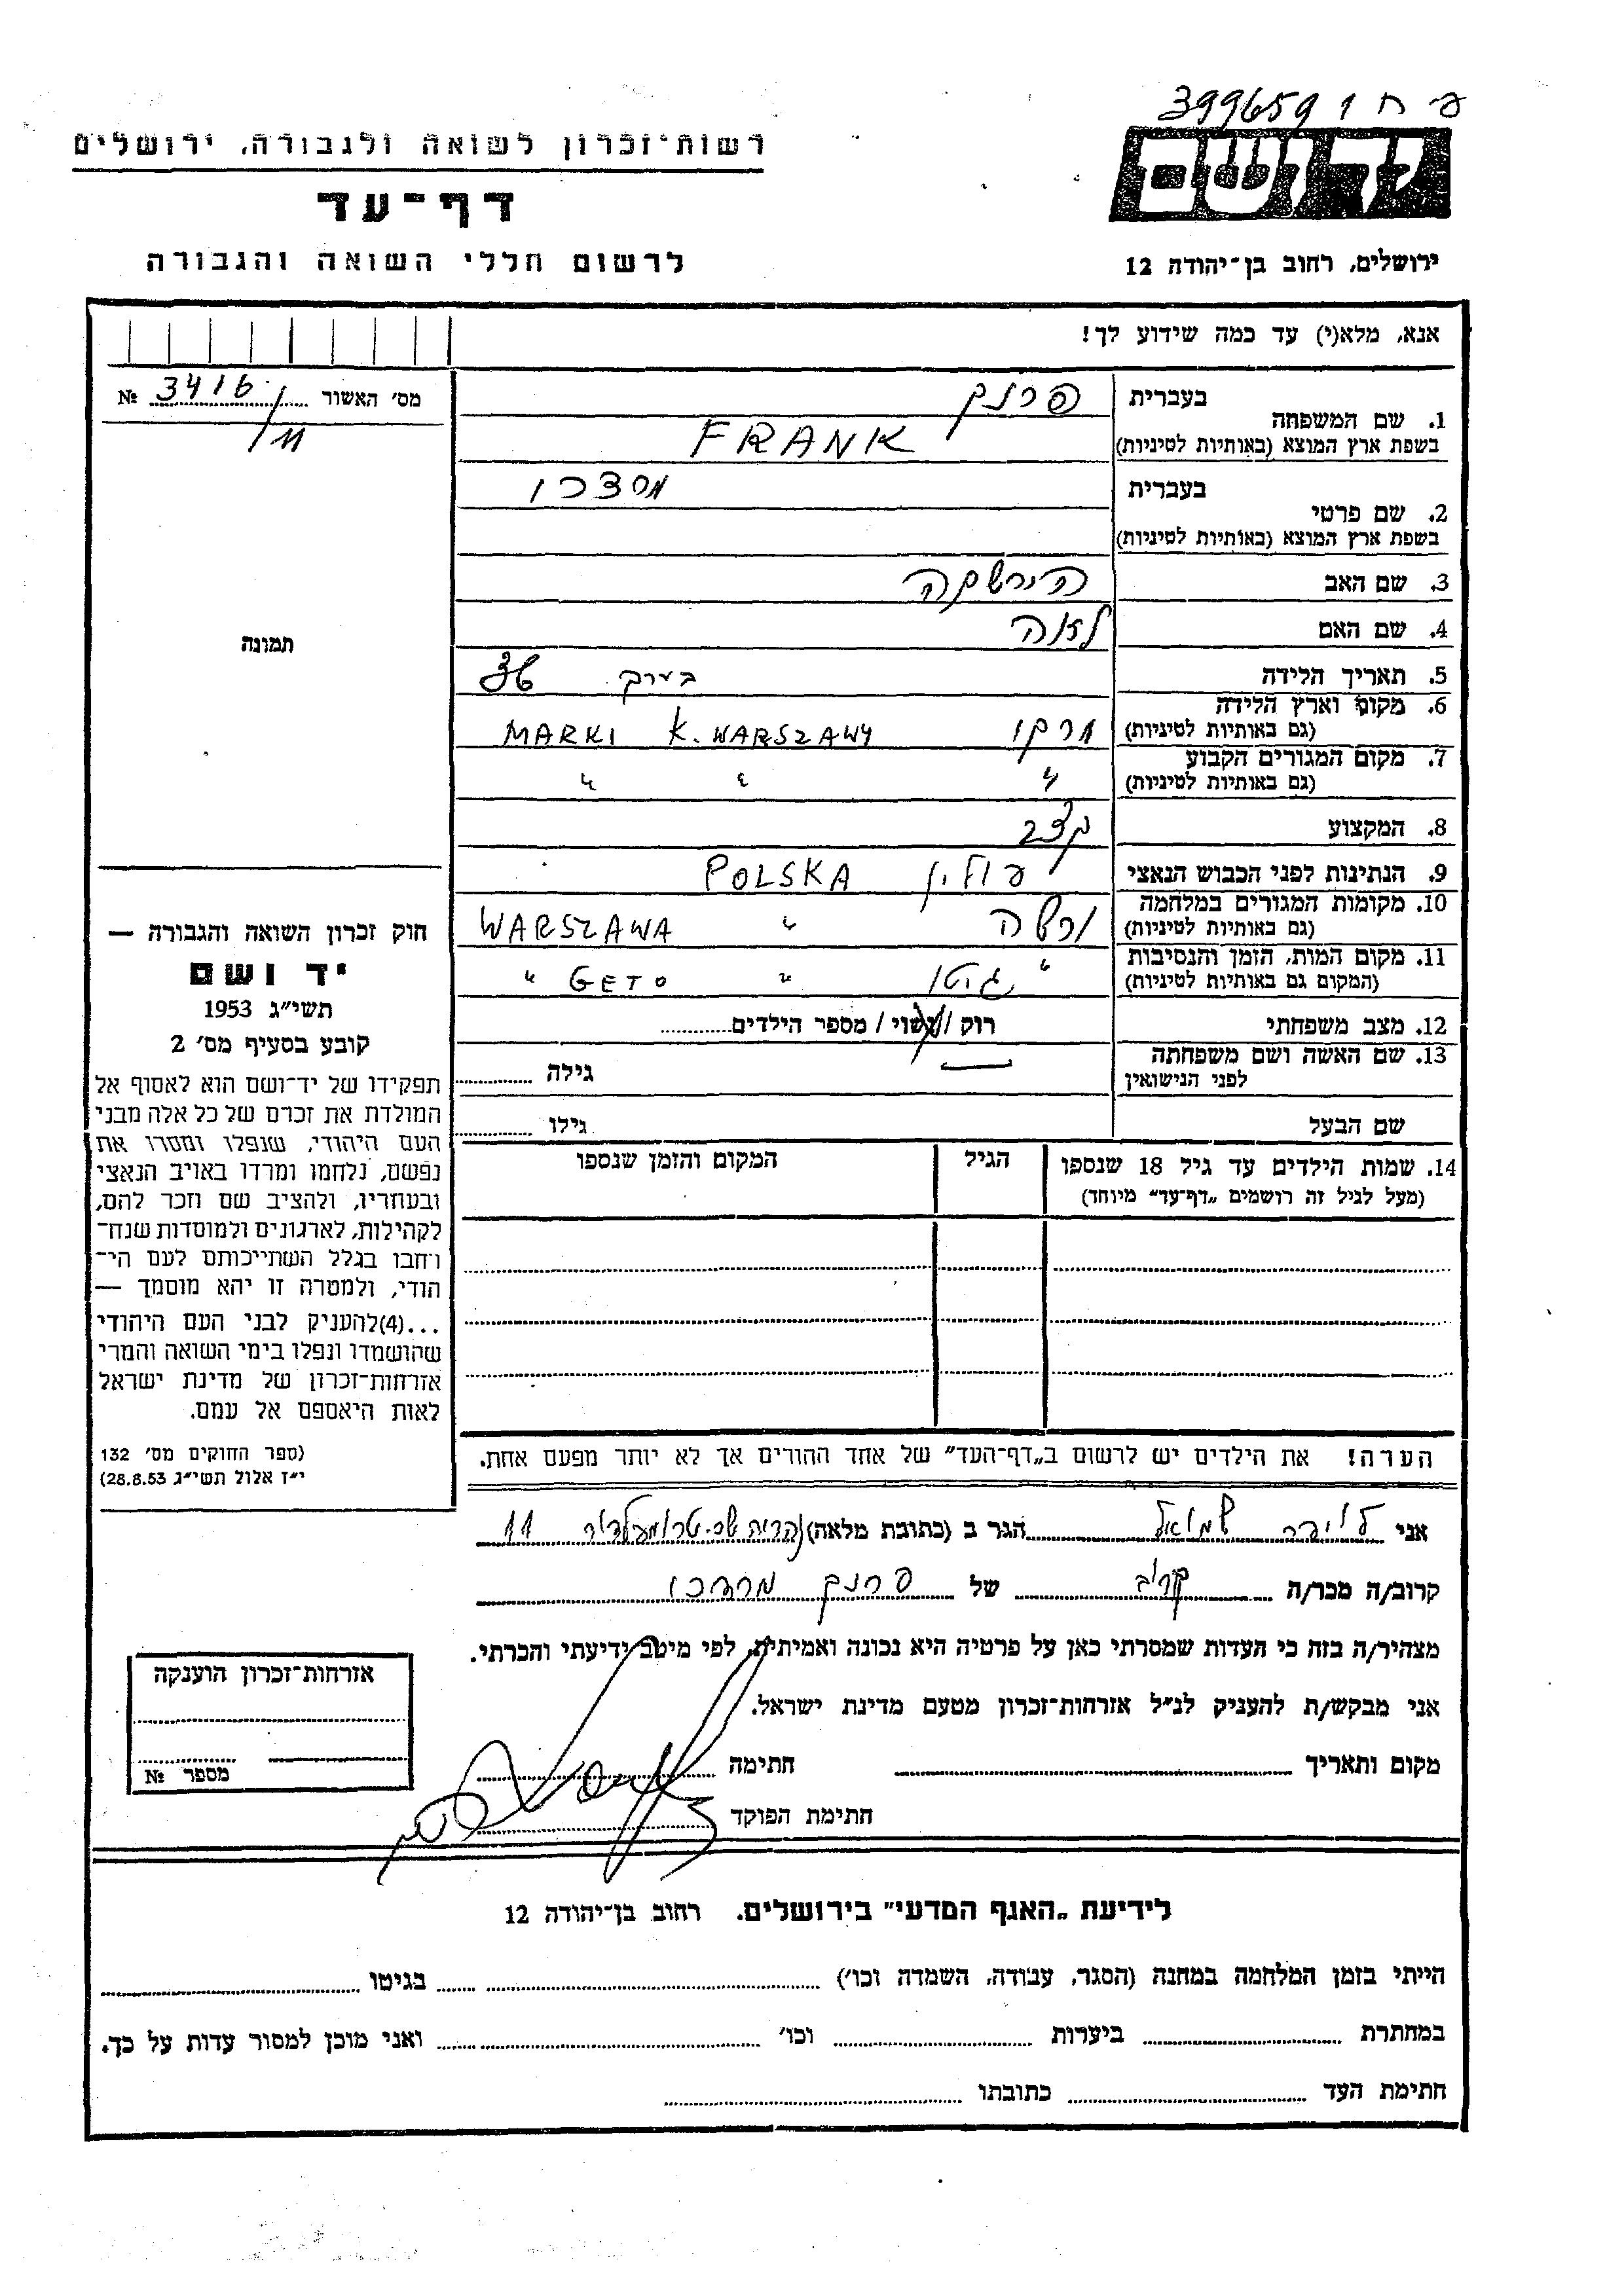 399659 / ח פ
יד ושם
רשות־זכרון לשואה ולגבורה, ירושלים
דף־עד
לרשום חללי השואה והגבורה
ירושלים, רחוב בן־יהודה 12
אנא, מלא(י) עד כמה שידוע לך!
מס׳ האשור 3416 №
11
1. שם המשפחה
בעברית פרנק
בשפת ארץ המוצא (באותיות לטיניות) FRANK
2. שם פרטי
בעברית מרדכי
בשפת ארץ המוצא (באותיות לטיניות)
3. שם האב הירשקה
4. שם האם לאה
5. תאריך הלידה בערך
6. מקום וארץ הלידה
(גם באותיות לטיניות) מרקי MARKI K. WARSZAWY
7. מקום המגורים הקבוע
(גם באותיות לטיניות) " " "
8. המקצוע קצב
9. הנתינות לפני הכבוש הנאצי פולין POLSKA
10. מקומות המגורים במלחמה
(גם באותיות לטיניות) ורשה " WARSZAWA
11. מקום המות, הזמן והנסיבות
(המקום גם באותיות לטיניות) " גיטו " GETO "
12. מצב משפחתי רוק / נשוי / מספר הילדים
13. שם האשה ושם משפחתה
לפני הנישואין — גילה
שם הבעל גילו
14. שמות הילדים עד גיל 18 שנספו הגיל המקום והזמן שנספו
(מעל לגיל זה רושמים „דף־עד״ מיוחד)
הערה! את הילדים יש לרשום ב„דף־העד״ של אחד ההורים אך לא יותר מפעם אחת.
תמונה
חוק זכרון השואה והגבורה —
יד ושם
תשי״ג 1953
קובע בסעיף מס׳ 2
תפקידו של יד־ושם הוא לאסוף אל
המולדת את זכרם של כל אלה מבני
העם היהודי, שנפלו ומסרו את
נפשם, נלחמו ומרדו באויב הנאצי
ובעוזריו, ולהציב שם וזכר להם,
לקהילות, לארגונים ולמוסדות שנח־
רחבו בגלל השתייכותם לעם הי־
הודי, ולמטרה זו יהא מוסמך —
...(4)להעניק לבני העם היהודי
שהושמדו ונפלו בימי השואה והמרי
אזרחות־זכרון של מדינת ישראל
לאות היאספם אל עמם.
(ספר החוקים מס׳ 132
י״ז אלול תשי״ג 28.8.53)
אני שמואל הגר ב (כתובת מלאה) 11
קרוב/ה מכר/ה קרוב של פרנק מרדכי
מצהיר/ה בזה כי העדות שמסרתי כאן על פרטיה היא נכונה ואמיתית, לפי מיטב ידיעתי והכרתי.
אני מבקש/ת להעניק לנ״ל אזרחות־זכרון מטעם מדינת ישראל.
מקום ותאריך חתימה
חתימת הפוקד
אזרחות־זכרון הוענקה
מספר №
לידיעת „האגף המדעי״ בירושלים. רחוב בן־יהודה 12
הייתי בזמן המלחמה במחנה (הסגר, עבודה, השמדה וכו׳) בגיטו
במחתרת ביערות וכו׳ ואני מוכן למסור עדות על כך.
חתימת העד כתובתו